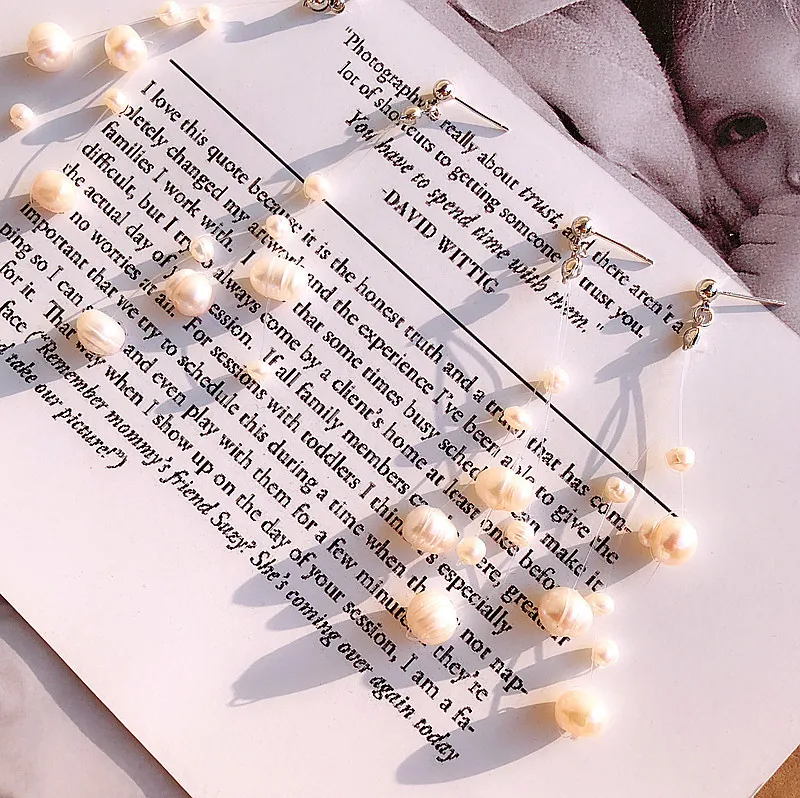 "Photography's really about trust, and there aren't a
lot of shortcuts to getting someone to trust you.
You have to spend time with them."
-DAVID WITTIG
I love this quote because it is the honest truth and a truth that has com-
pletely changed my artwork and the experience I've been able to give the
families I work with. I that some times busy make it
difficult, but I try always come by a client's home at least once before
the actual day of session. If all family members great
no worries at all. For sessions with toddlers I think especially
important that we try to schedule this during a time when not nap-
ping so I can and even play with them for a few minutes they're
for it. That way when I show up on the day of your session, I am a fa-
face ("Remember mommy's friend Suzy? She's coming over again today
take our picture!")